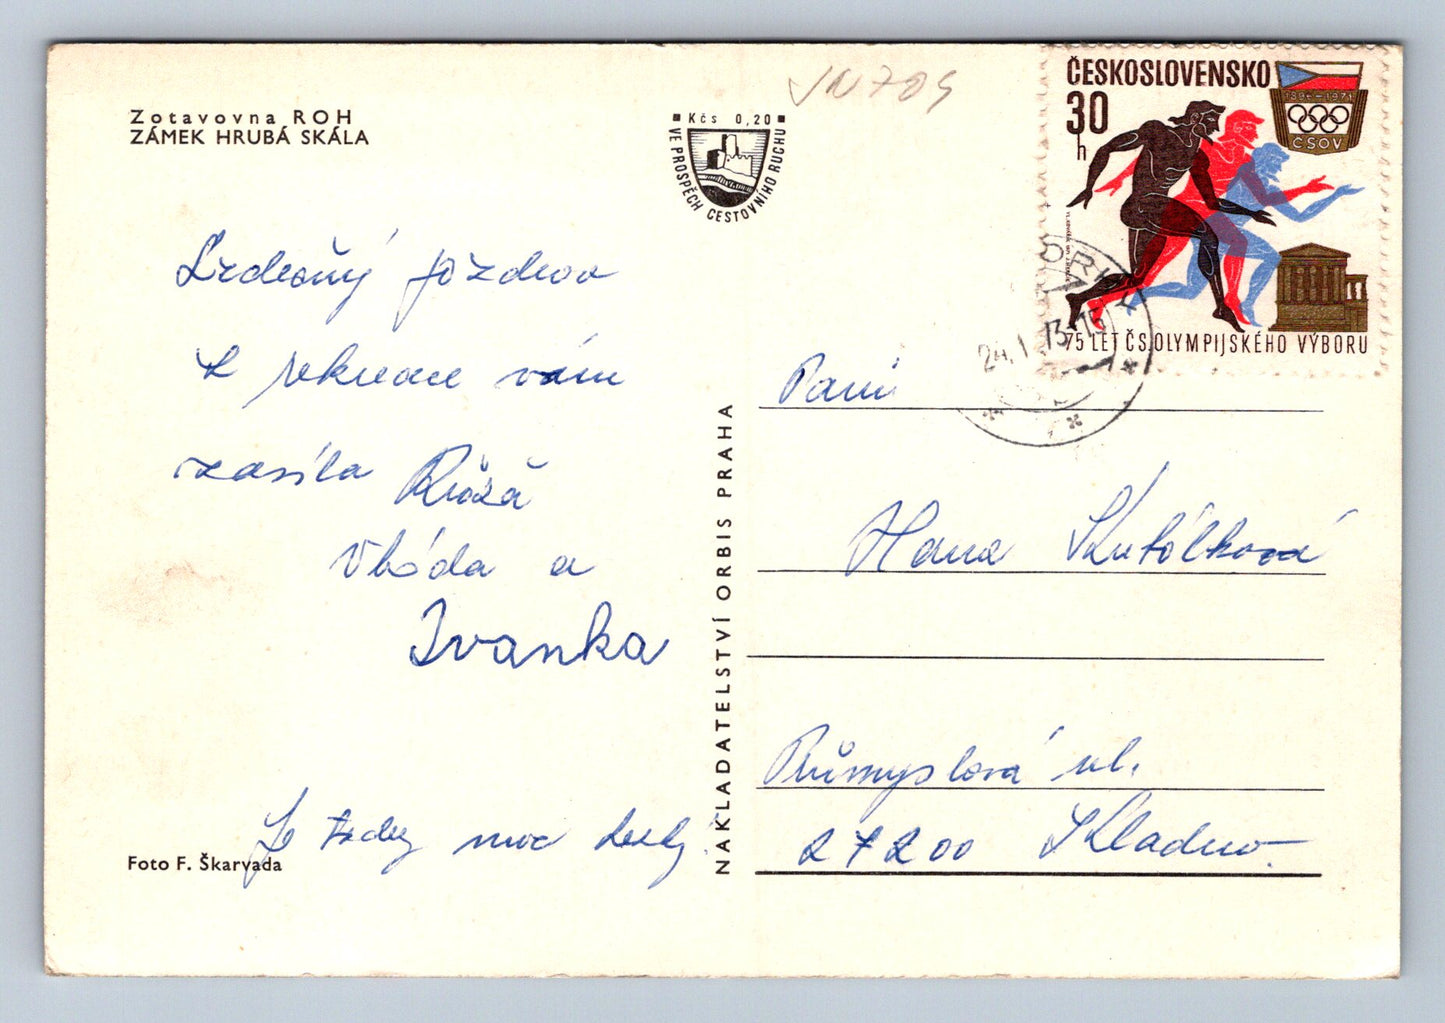 Zotavovna ROH
ZÁMEK HRUBÁ SKÁLA
Kčs 0,20
VE PROSPĚCH CESTOVNÍHO RUCHU
ČESKOSLOVENSKO
30
h
1896-1971
ČSOV
75 LET ČS. OLYMPIJSKÉHO VÝBORU
24.1.73-15
Srdečný pozdrav
z rekreace vám
zasílá Růža
Vláďa a
Ivanka
Je tady moc hezky.
Foto F. Škarvada
NAKLADATELSTVÍ ORBIS PRAHA
Paní
Hana
Průmyslová ul.
27200 Kladno.